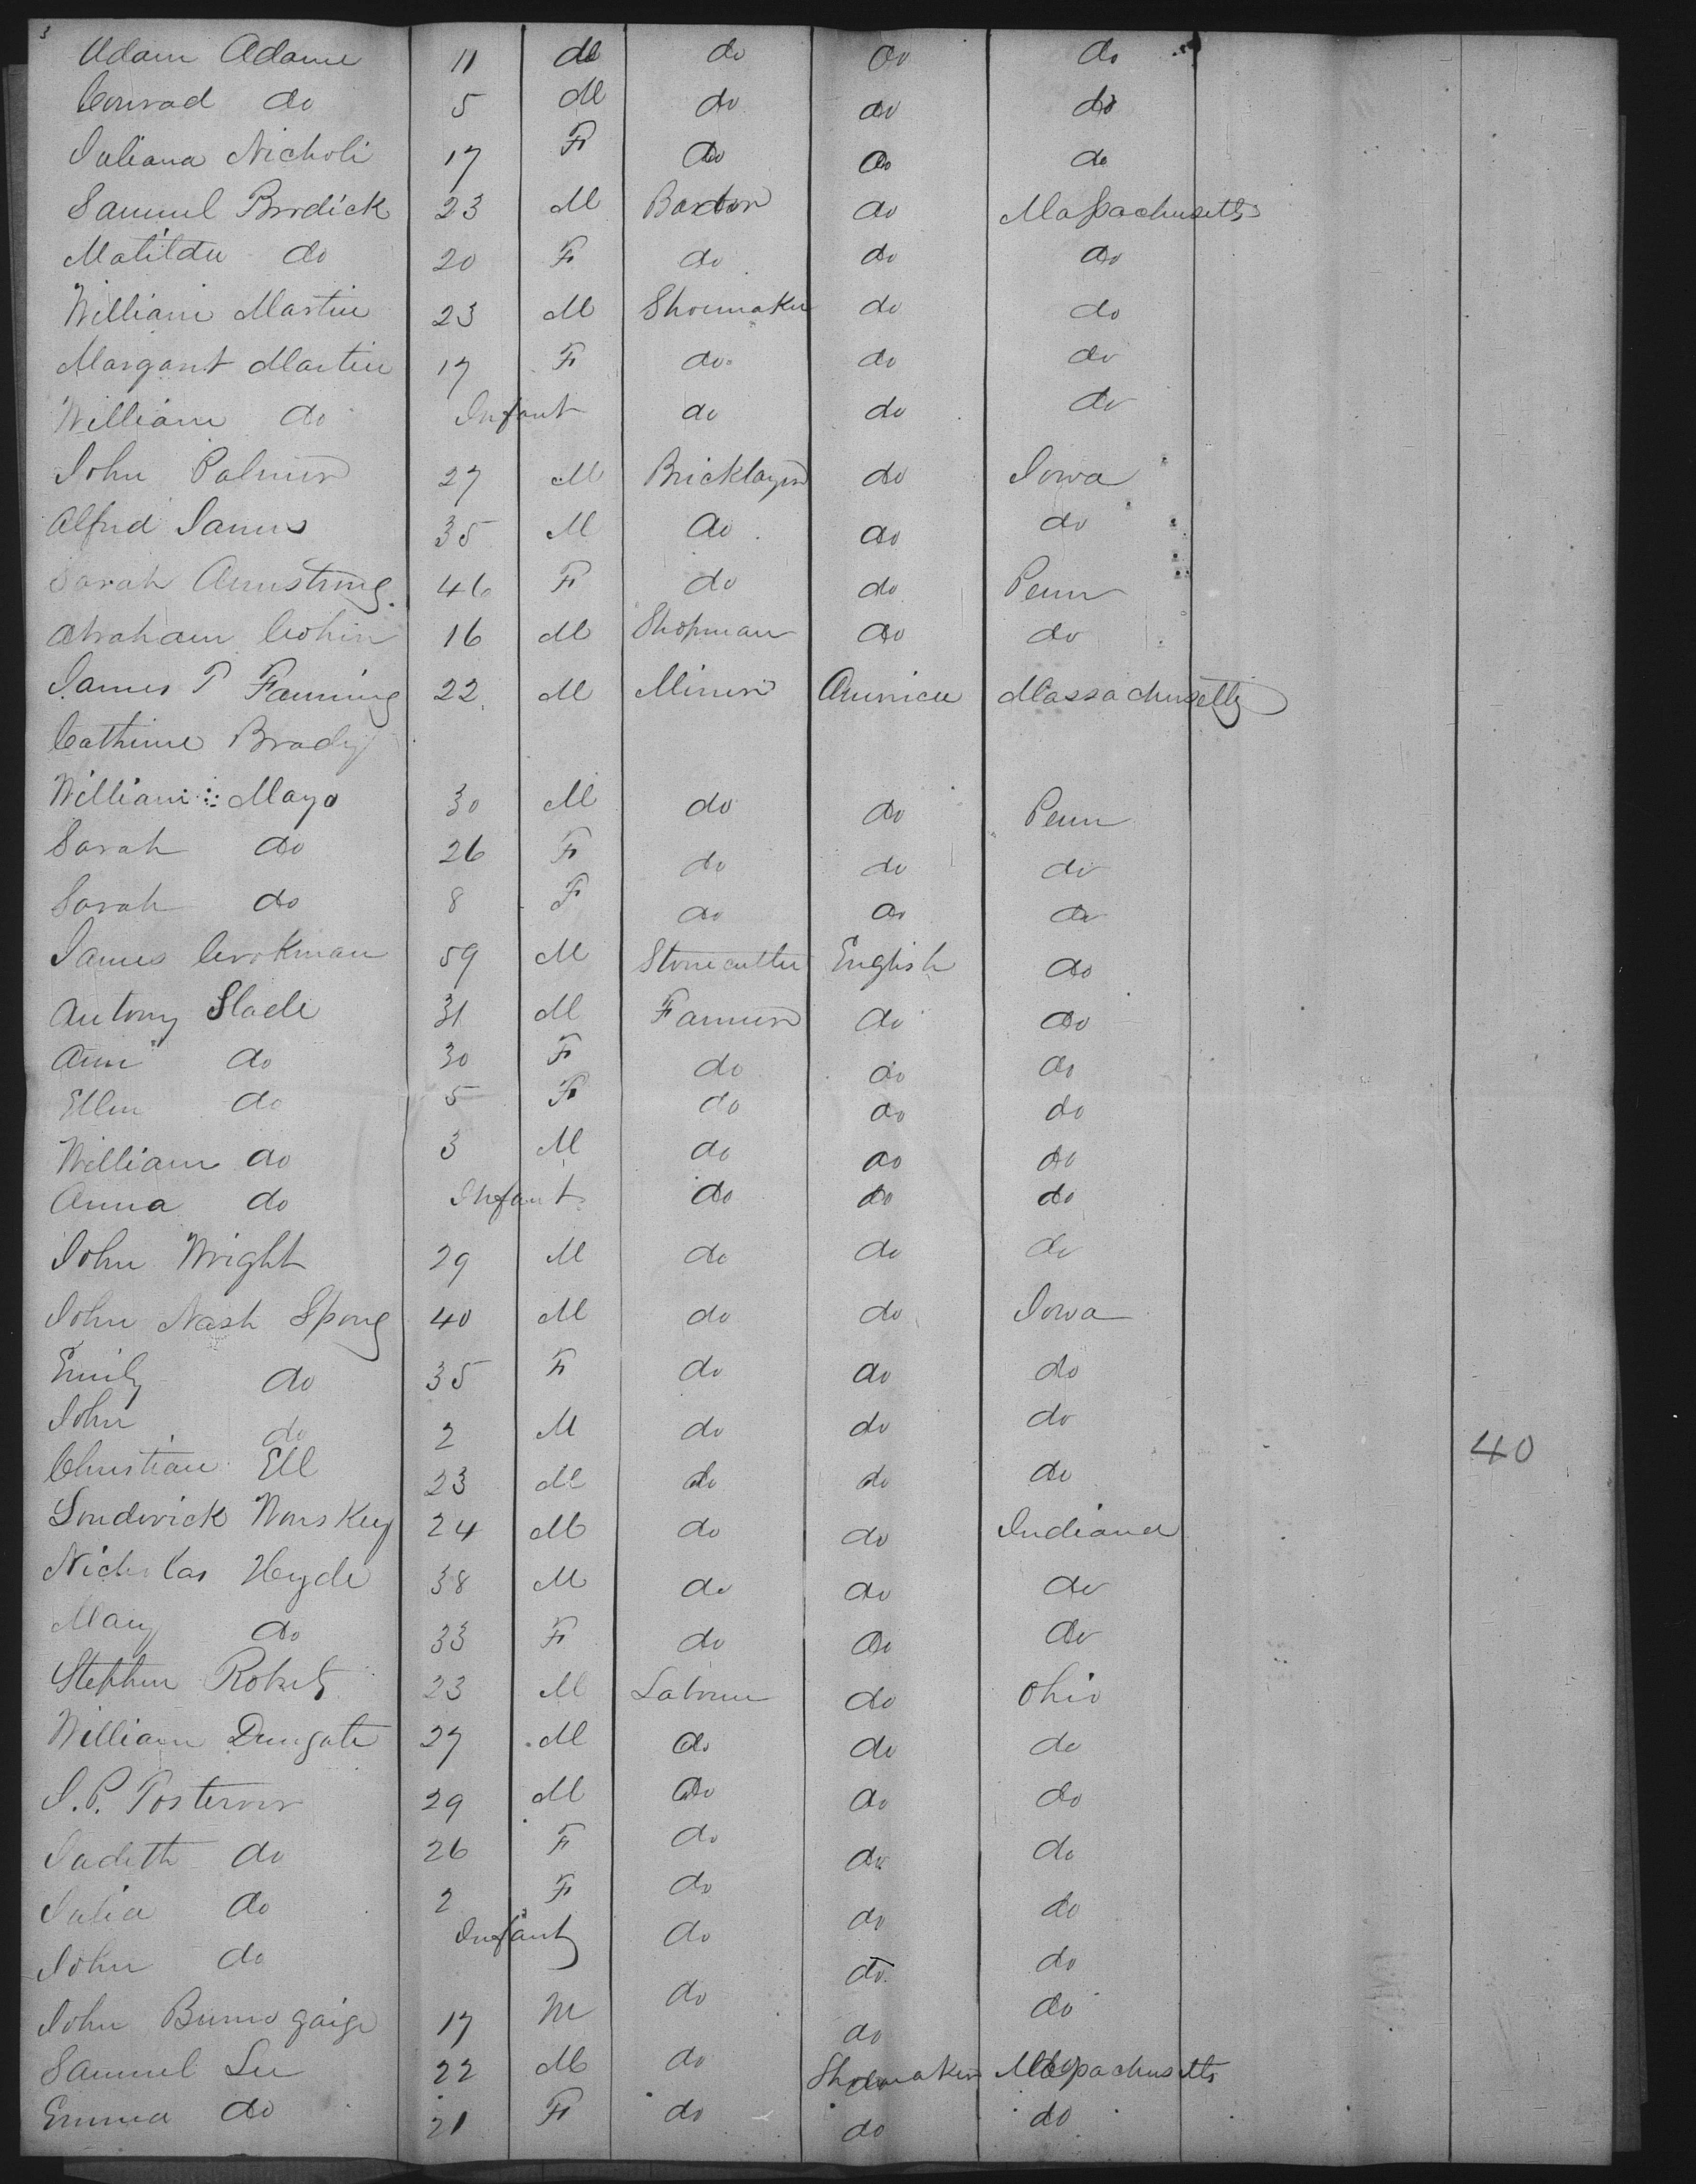 3
Adam Adame 11 M do do do
Conrad do 5 M do do do
Juliana Nicholi 17 F do do do
Samuel Brodick 23 M do Massachusetts
Matilda do 20 F do do do
William Martin 23 M Shoemaker do do
Margaret Martin 17 F do do do
William do Infant do do do
John Palmer 27 M Bricklayer do Iowa
Alfred James 35 M do do do
Sarah Armstrong 46 F do do Penn
Abraham Cohin 16 M Shopman do do
James T Fanning 22 M Miner America Massachusetts
Catherine Brady
William Mayo 30 M do do Penn
Sarah do 26 F do do do
Sarah do 8 F do do do
James 59 M Stonecutter English do
Antony Slade 31 M Farmer do do
Ann do 30 F do do do
Ellen do 5 F do do do
William do 3 M do do do
Anna do Infant do do do
John Wright 29 M do do do
John Nash Spong 40 M do do Iowa
Emily do 35 F do do do
John do 2 M do do do
Christian Ell 23 M do do do 40
24 M do do Indiana
Nicholas Heyde 38 M do do do
Mary do 33 F do do do
Stephen Roberts 23 M Laborer do Ohio
William Dungate 27 M do do do
J. P. 29 M do do do
do 26 F do do do
Julia do 2 F do do do
John do Infant do do do
John 17 M do do do
Samuel Lee 22 M do Shoemaker Massachusetts
Emma do 21 F do do do